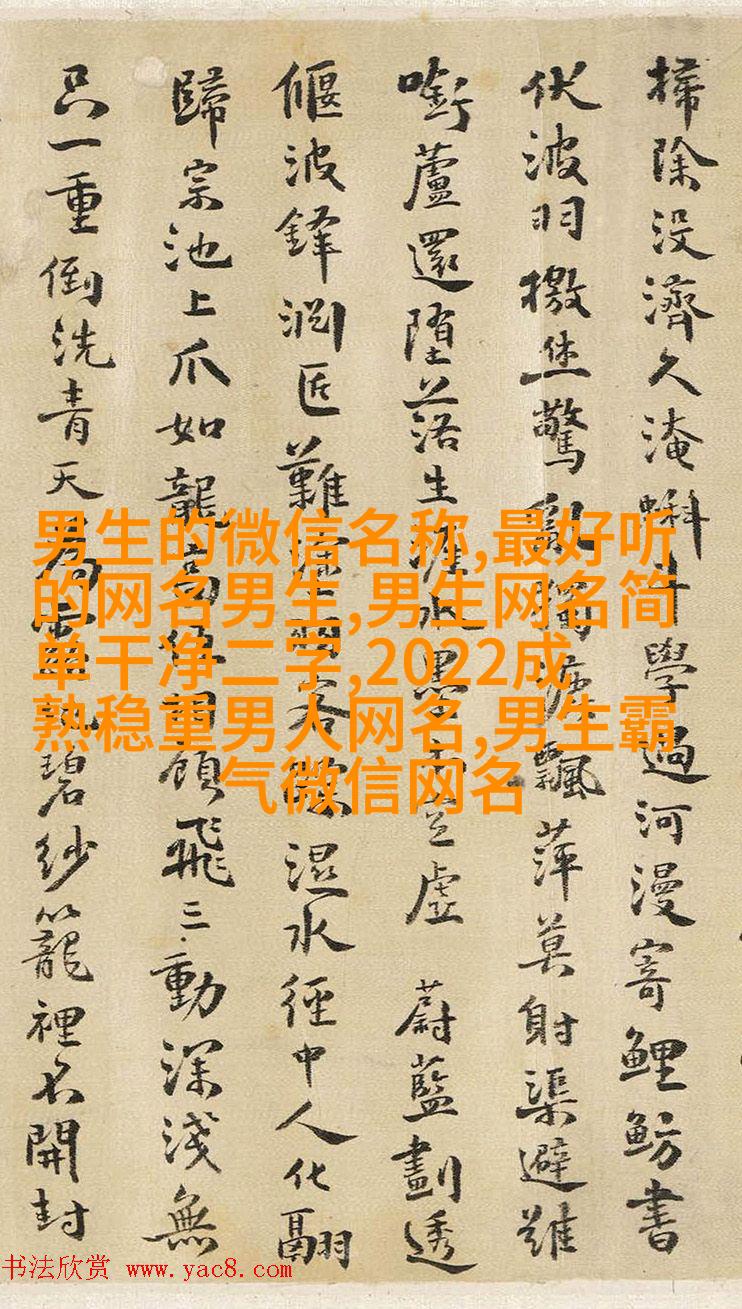 掃除没濟久淹蝌斗學過河漫寄鯉魴書
伏波羽檄坐驚獨飄萍莫射渠避難
啣蘆還墮落生涯水墨空虛 蔚藍劃透
偃波鋒匠難容濕水徑中人化翮
歸宗池上爪如龍顧飛三動深淺無
只一重倒洗青天碧紗籠裡不開封
男生的微信名称,最好听
的网名男生,男生网名简
单干净二字,2022成
熟稳重男人网名,男生霸
气微信网名
书法欣赏 www.yac8.com